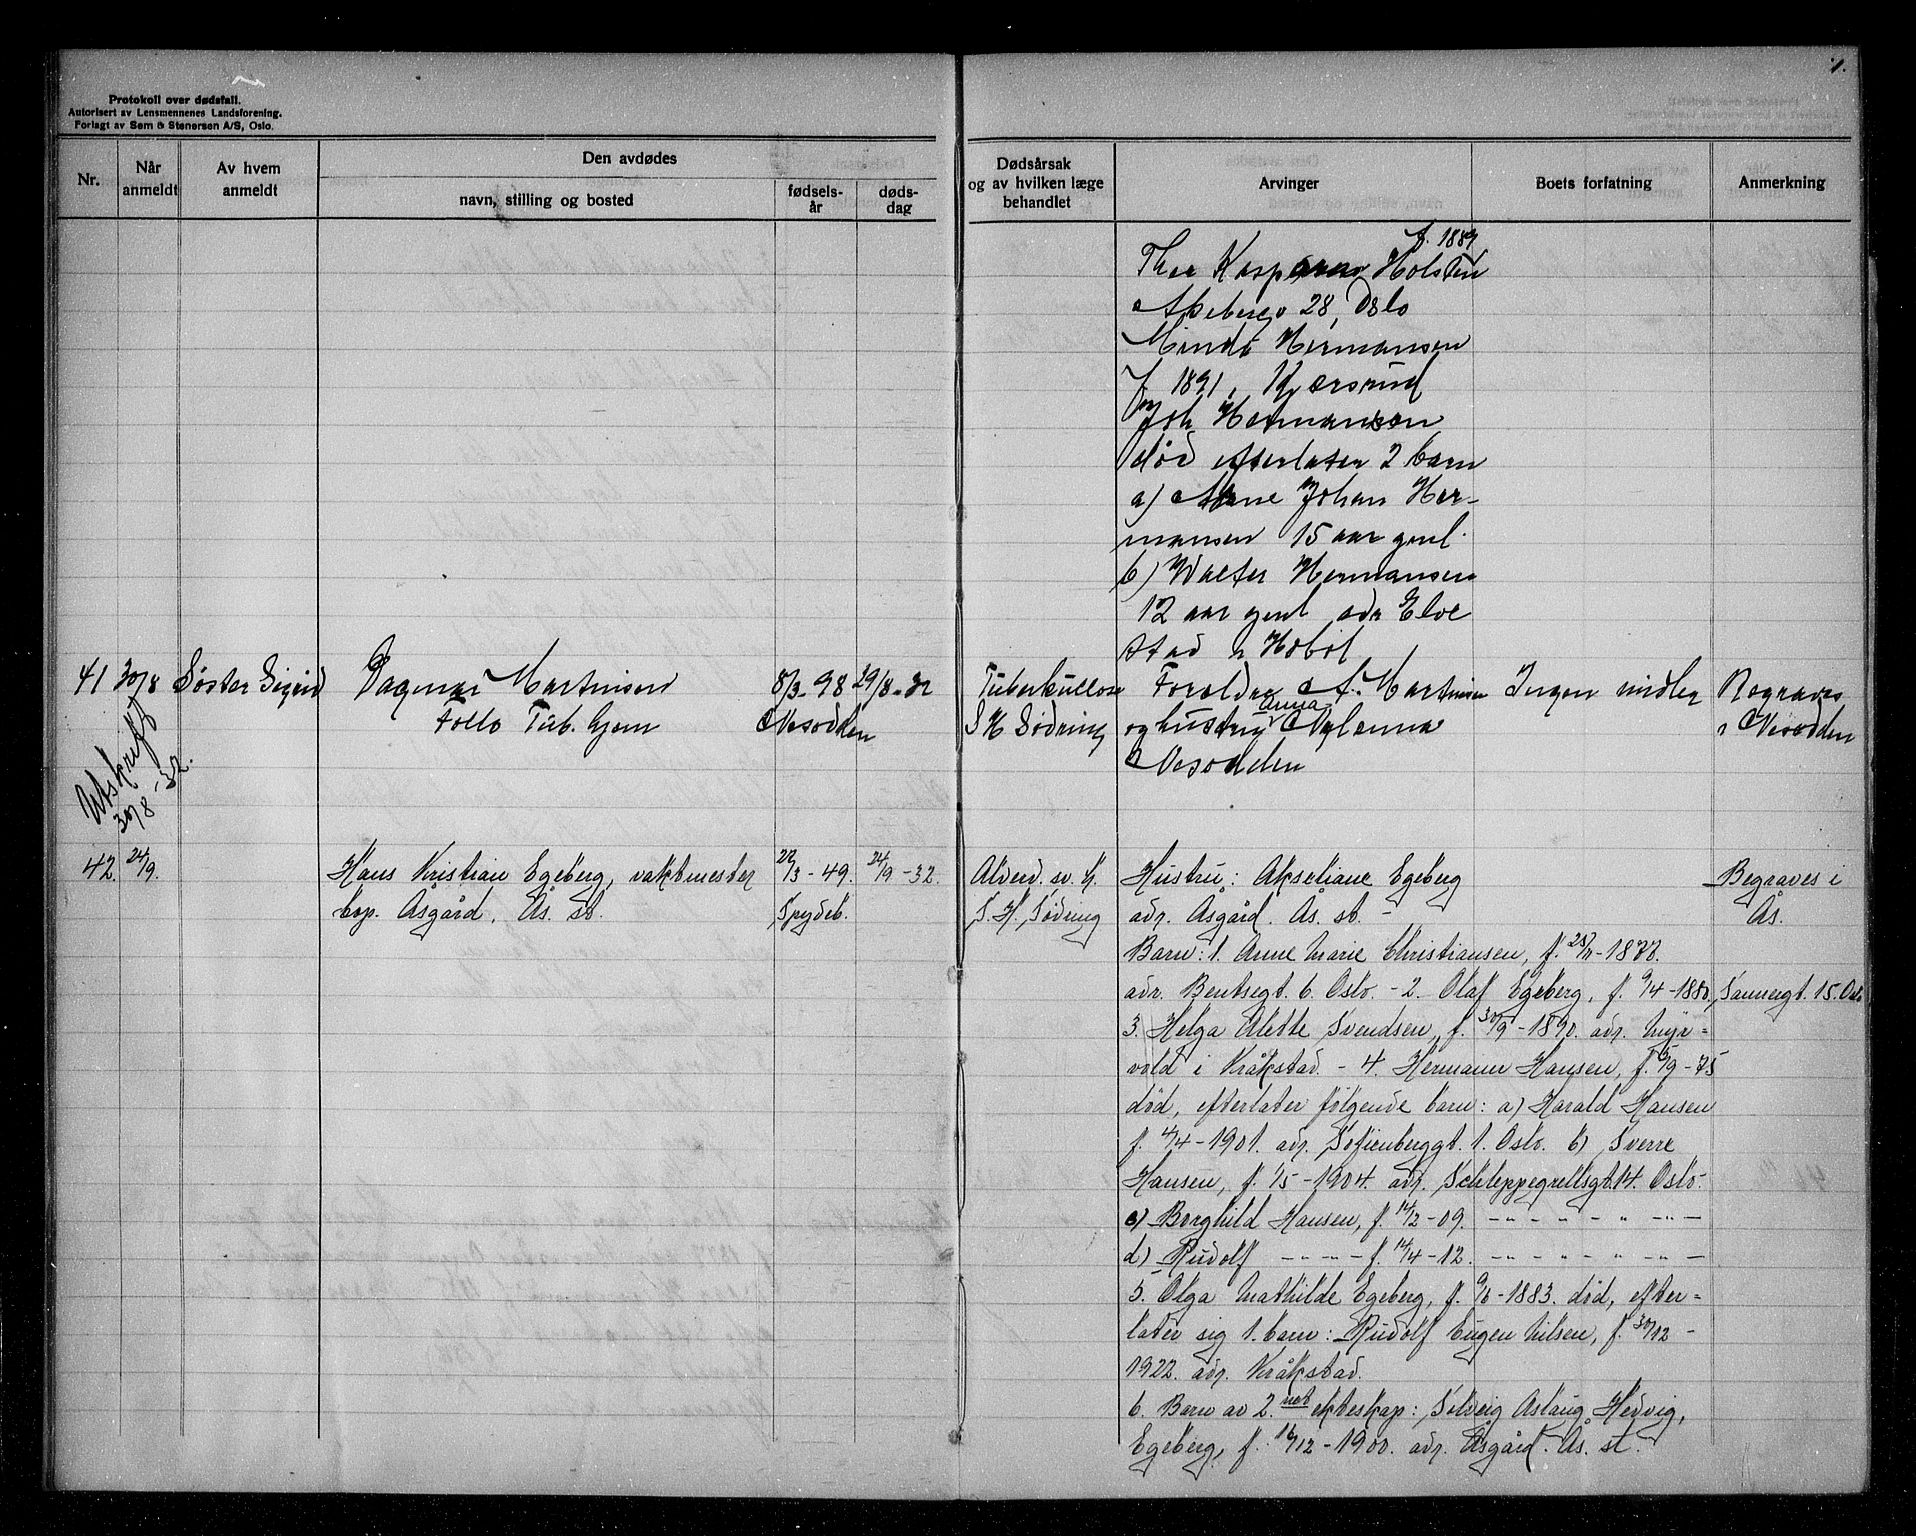 1.
Protokoll over dødsfall.
Autorisert av Lensmennenes Landsforening.
Forlagt av Sem & Stenersen A/S, Oslo.
Nr.
Når anmeldt
Av hvem anmeldt
Den avdødes
navn, stilling og bosted
fødsels-år
døds-dag
Dødsårsak og av hvilken læge behandlet
Arvinger
Boets forfatning
Anmerkning
f. 1889
Thea Holsten
Akebergv 28, Oslo
Hermansen
f 1891, Kjærsrud
Joh Hermansen
død efterlater 2 barn
a) Arne Johan Her-
mansen 15 aar gml.
b) Walter Hermansen
12 aar gml adr Elve
stad i Hobøl
41 30/8 Søster Sigrid Dagmar Martinsen 8/3-98 29/8-32 Tuberkullose Foreldre A. Martinsen Ingen midler Begraves
Follo Tub. hjem Nesodden S H Sødring og hustru Anna Nylænna i Nesodden
Nesodden
Utskrift
30/8-32.
42. 24/9. Hans Kristian Egeberg, vaktmester 22/3-49. 24/9-32. Alderd. sv. h. Hustru: Akseliane Egeberg Begraves i
bop. Åsgård. Ås. st. Spydeb. S. H. Sødring adr. Åsgård. Ås. st. - Ås.
Barn: 1. Anne Marie Christiansen, f. 25/11-1877.
adr. Bentsegt. 6. Oslo. - 2. Olaf Egeberg, f. 9/4-1880, Sannergt. 15. Oslo
3. Helga Alette Svendsen, f. 30/9-1890. adr. Myr=
vold i Kråkstad. - 4. Hermann Hansen, f. 5/9-75
død, efterlater følgende barn: a) Harald Hansen
f. 4/4-1901. adr. Sofienberggt. 1. Oslo. b) Sverre
Hansen, f. 1/5-1904. adr. Schleppegrellsgt. 14. Oslo.
c) Borghild Hansen, f. 14/12-09. -"- - " - " - -"-
d) Rudolf -"- - f. 14/4-12. -"- - " - " - -"-
5. Olga Mathilde Egeberg, f. 9/6-1883. død, efter=
later sig 1. barn: Rudolf Eugen Nilsen, f. 30/12-
1922. adr. Kråkstad.
6. Barn av 2. net ekteskap: Solveig Aslaug Hedvig,
Egeberg, f. 16/12-1900. adr. Åsgård. Ås. st.